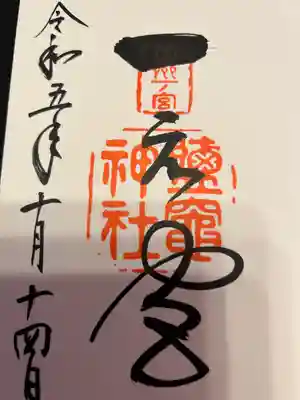 一之宮
鹽竈
神社
令和五年十月十四日